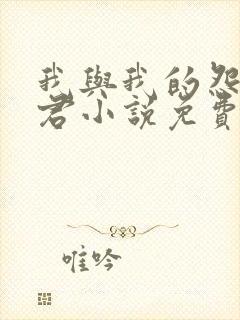 我與我的怨
君小說免費
唯吟